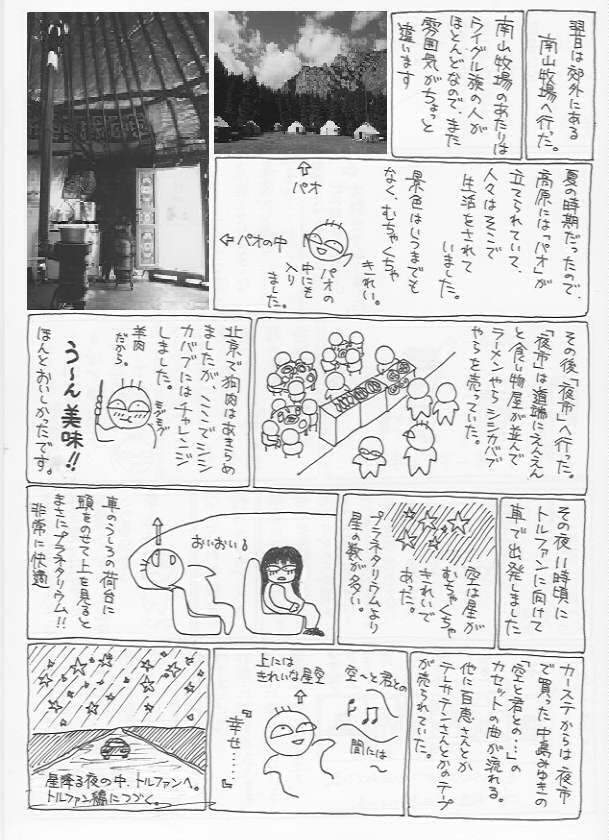 翌日は郊外にある
南山牧場へ行った。
南山牧場のあたりは
ウイグル族の人が
ほとんどなので、また
雰囲気がちょっと
違います
夏の時期だったので、
高原には「パオ」が
立てられていて、
人々はそこで
生活をされて
いました。
景色はいつまでも
なく、むちゃくちゃ
きれい。
パオの
中にも
入り
ました。
⇧
パオ
⇦パオの中
その後「夜市」へ行った。
「夜市」は道端にえんえん
と食い物屋が並んで
ラーメンやらシシカバブ
やらを売っていた。
北京で狗肉はあきらめ
ましたが、ここでシシ
カバブにはチャレンジ
しました。
羊肉
だから。
う〜ん美味!!
ほんとおいしかったです。
モグモグ
その夜11時頃に
トルファンに向けて
車で出発しました
空は星が
むちゃくちゃ
きれいで
あった。
プラネタリウムより
星の数が多い。
おいおい
車のうしろの荷台に
頭をのせて上を見ると
まさにプラネタリウム!!
非常に快適
カーステからは夜市
で買った中島みゆきの
「空と君との…」の
カセットの曲が流れる。
他に百恵さんとか
テレサテンさんとかのテープ
が売られていた。
空〜と君との
間には〜
上には
きれいな星空
『幸せ……』
星降る夜の中、トルファンへ。
トルファン編につづく。